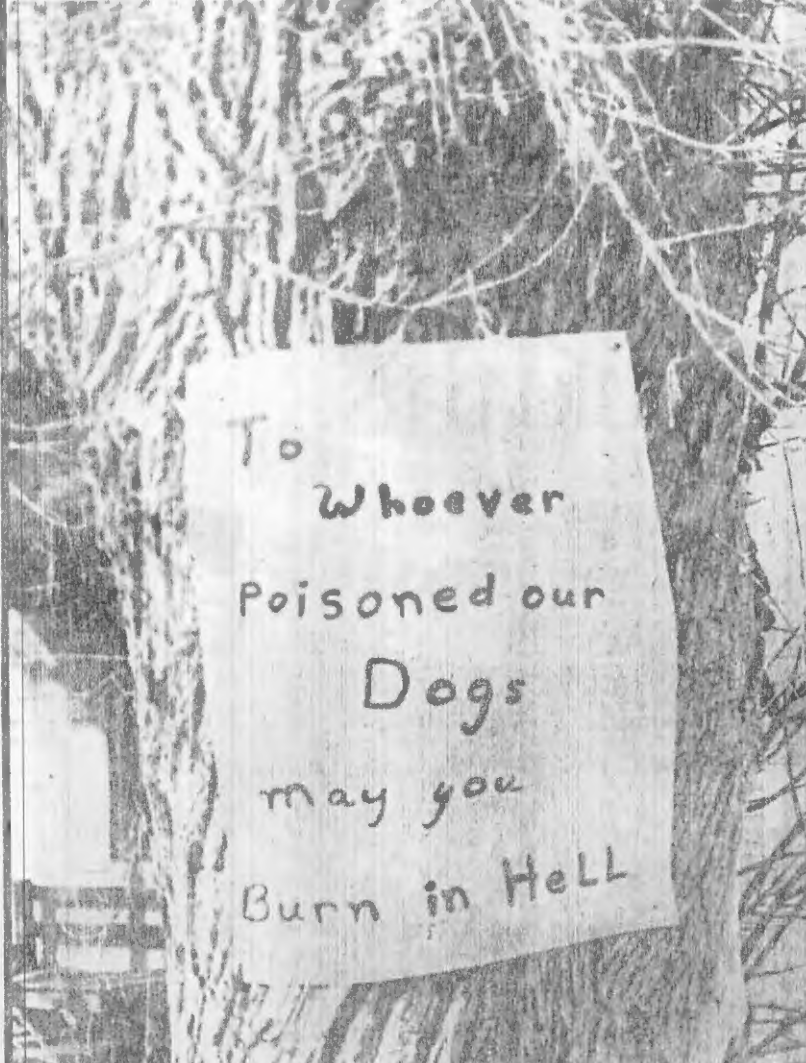 To
Whoever
Poisoned our
Dogs
may you
Burn in HeLL